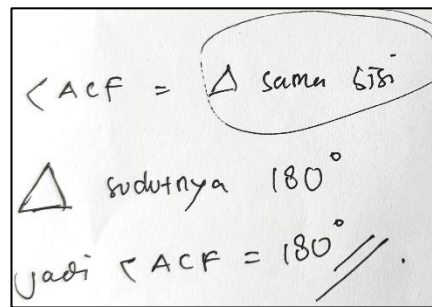 < ACF = △ sama sisi
△ sudutnya 180°
Jadi < ACF = 180° // .